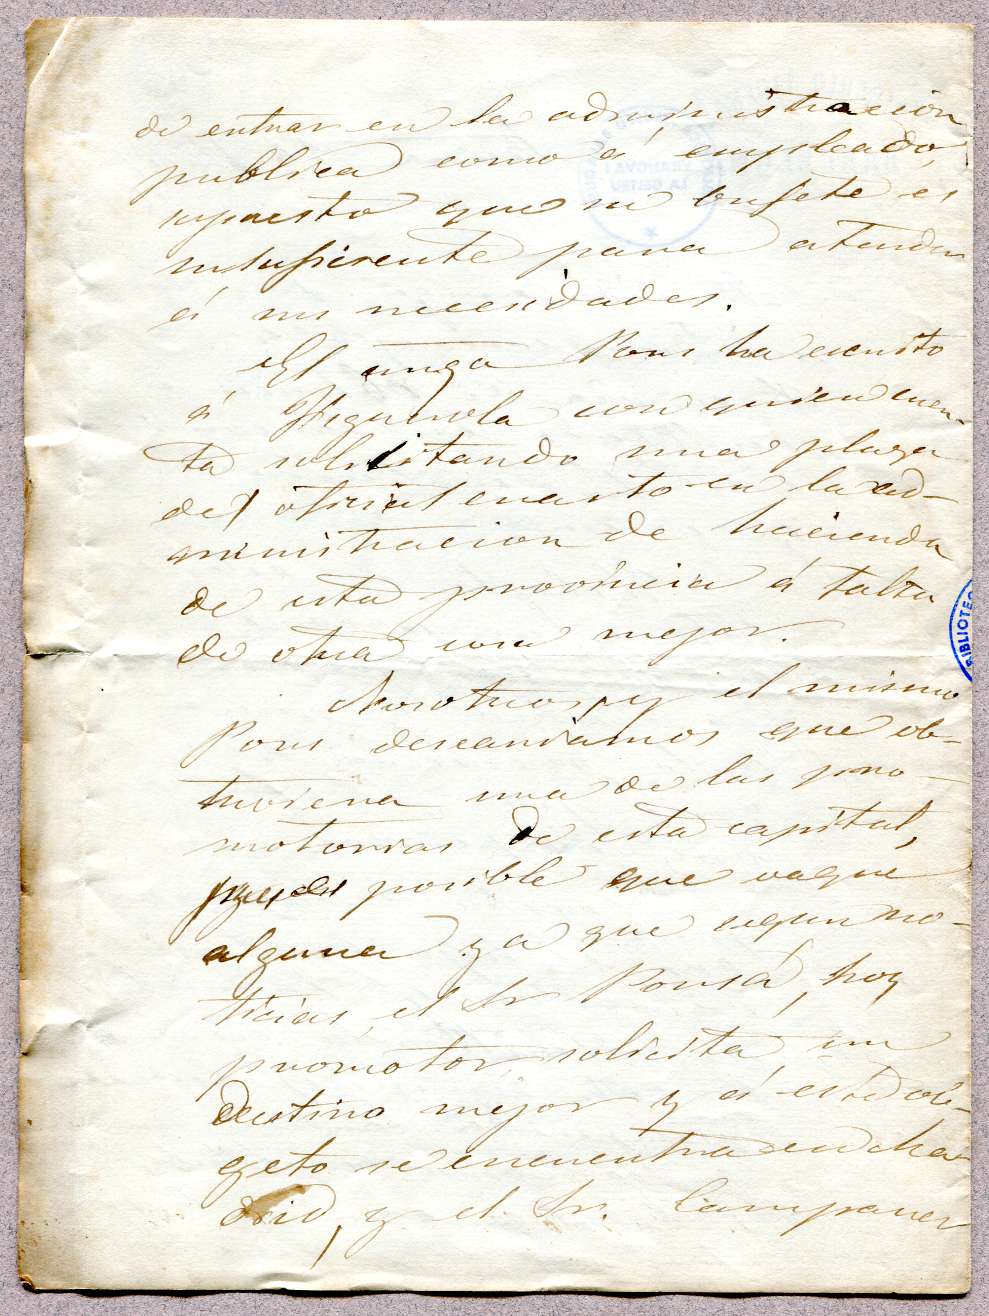 de entrar en la administracion
publica como á empleado,
supuesto que su bufete es
insuficiente para atender
á sus necesidades.
El amigo Pons ha escrito
á Figuerola con quien cuen-
ta solicitando una plaza
del oficial cuarto en la ad-
ministracion de hacienda
de esta provincia á falta
de otra cosa mejor.
Nosotros, y el mismo
Pons deseariamos que ob-
tuviera una de las pro-
motorias de esta capital,
pues es posible que vaque
alguna ya que segun no-
ticias, el Sr Ponsá, hoy
promotor, solicita un
destino mejor y á este ob-
geto se encuentra en Ma
drid, y el Sr. Campaner
BIBLIOTEC